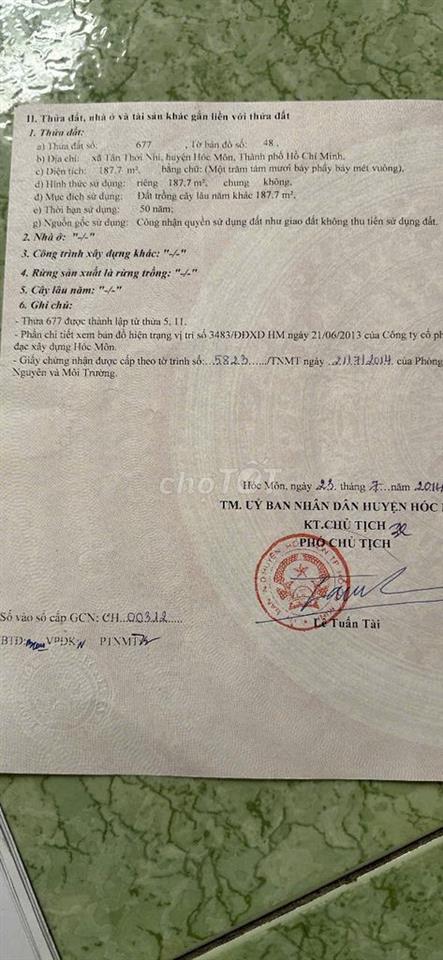 II. Thửa đất, nhà ở và tài sản khác gắn liền với thửa đất
1. Thửa đất:
a) Thửa đất số: 677 , Tờ bản đồ số: 48,
b) Địa chỉ: xã Tân Thới Nhì, huyện Hóc Môn, Thành phố Hồ Chí Minh,
c) Diện tích: 187.7 m², bằng chữ: (Một trăm tám mươi bảy phẩy bảy mét vuông),
d) Hình thức sử dụng: riêng 187.7 m², chung không,
đ) Mục đích sử dụng: Đất trồng cây lâu năm khác 187.7 m²,
e) Thời hạn sử dụng: 50 năm;
g) Nguồn gốc sử dụng: Công nhận quyền sử dụng đất như giao đất không thu tiền sử dụng đất.
2. Nhà ở: "-/-"
3. Công trình xây dựng khác: "-/-"
4. Rừng sản xuất là rừng trồng: "-/-"
5. Cây lâu năm: "-/-"
6. Ghi chú:
- Thửa 677 được thành lập từ thửa 5, 11.
- Phần chi tiết xem bản đồ hiện trạng vị trí số 3483/ĐĐXD HM ngày 21/06/2013 của Công ty cổ ph
đạc xây dựng Hóc Môn.
- Giấy chứng nhận được cấp theo tờ trình số: 5823 /TNMT ngày 21/7/2014 của Phòng
Nguyên và Môi Trường.
chợ TỐT
Hóc Môn, ngày 23 tháng 7 năm 2014
TM. UỶ BAN NHÂN DÂN HUYỆN HÓC
KT.CHỦ TỊCH
PHÓ CHỦ TỊCH
Lê Tuấn Tài
Số vào sổ cấp GCN: CH 00312
BTD: VPĐK PTNMT